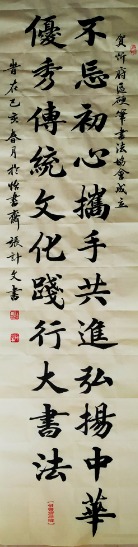 賀沂府區硬筆書法協會成立
不忘初心攜手共進弘揚中華
優秀傳統文化踐行大書法
時在己亥春月於怡書齋張計文書